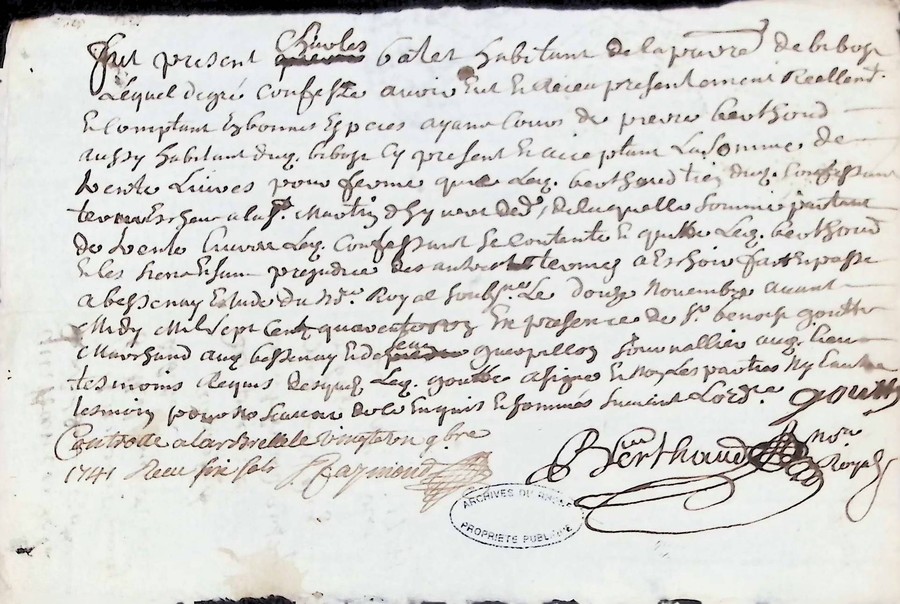 fut present Charles balet habitant de la paroisse de bibost
Lequel degré Confesse avoir Eut Et Receu presentement Reellemt.
Et Comptant En bonnes Especes ayant Cours de pierre berthoud
aussy habitant dud. bibost Cy present Et acceptant La Somme de
trente Livres pour ferme que Led. berthoud tien dud. Confessant
terme Escheu a la St. Martin d'hyver de laquelle Somme partant
de trente Livres Led. Confessant Se Contente Et quitte Led. berthoud
Et les siens En sans prejudice des autres termes a Eschoir fait Et passé
a bessenay Etude du No.re Royal Soubs.ne Le douze novembre avant
Midy Mil Sept Cent quarente Et un En presence de Sr. benoist goutte
Marchand aud. bessenay Et de Jean guerpillon Journallier aud. Lieu
tesmoins Requis desquels Led. goutte a signé Et Non Les parties Ny L'autre
tesmoin pour ne Scavoir de ce Enquis Et sommés Suivant L'ord.ce goutte
Controllé a larbresle le vingt un 9bre
1741 Receu six sols Raymond
Berthaud no.re Royal
ARCHIVES DU RHONE
PROPRIETE PUBLIQUE